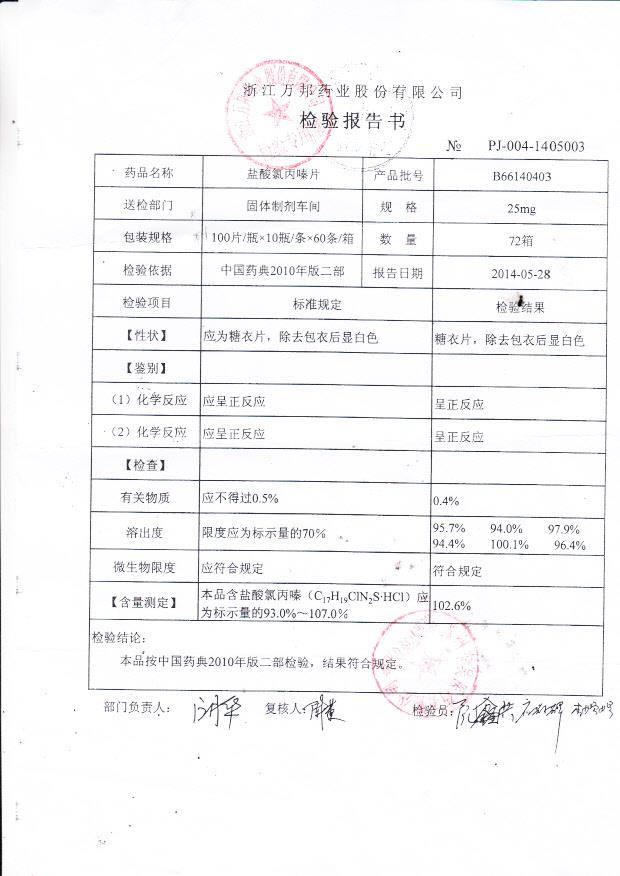 浙江万邦药业股份有限公司
检验报告书
№ PJ-004-1405003
药品名称 盐酸氯丙嗪片 产品批号 B66140403
送检部门 固体制剂车间 规 格 25mg
包装规格 100片/瓶×10瓶/条×60条/箱 数 量 72箱
检验依据 中国药典2010年版二部 报告日期 2014-05-28
检验项目 标准规定 检验结果
【性状】 应为糖衣片，除去包衣后显白色 糖衣片，除去包衣后显白色
【鉴别】
（1）化学反应 应呈正反应 呈正反应
（2）化学反应 应呈正反应 呈正反应
【检查】
有关物质 应不得过0.5% 0.4%
溶出度 限度应为标示量的70% 95.7% 94.0% 97.9%
94.4% 100.1% 96.4%
微生物限度 应符合规定 符合规定
【含量测定】 本品含盐酸氯丙嗪（C₁₇H₁₉ClN₂S·HCl）应
为标示量的93.0%～107.0% 102.6%
检验结论：
本品按中国药典2010年版二部检验，结果符合规定。
部门负责人： 复核人： 检验员：